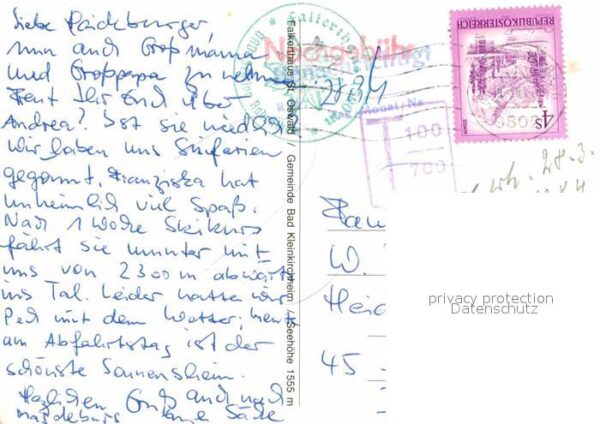 Liebe
nun auch Großmama
und Großpapa zu nehmen
Freut Ihr Euch über
Andrea? Ist sie niedlich?
Wir haben uns Skiferien
gegönnt. Franziska hat
unheimlich viel Spaß.
Nach 1 Woche Skikurs
fährt sie munter mit
uns von 2300 m abwärts
ins Tal. Leider hatten wir
Pech mit dem Wetter; heute
am Abfahrtstag ist der
schönste Sonnenschein.
Herzlichen Gruß auch nach
Magdeburg
Falkerthaus St. Oswald // Gemeinde Bad Kleinkirchheim // Seehöhe 1555 m
Nachgebühr
T
100
700
REPUBLIK ÖSTERREICH
4S
28.3.
Fam
W.
Heid
45
privacy protection
Datenschutz